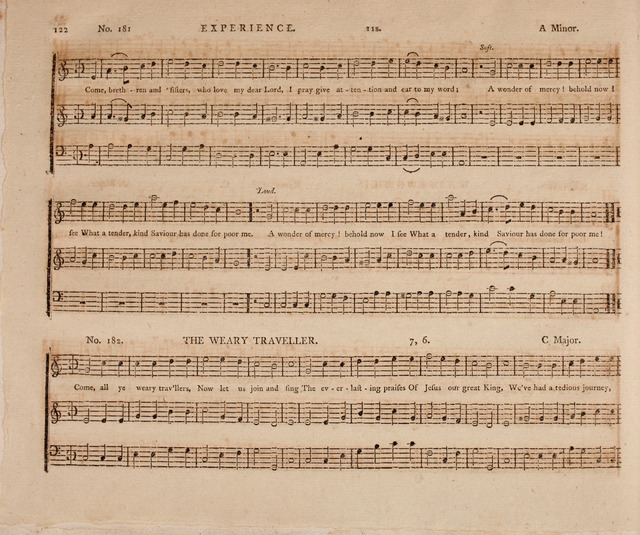 122 No. 181 EXPERIENCE. 11s. A Minor.
Soft.
Come, breth - ren and ſiſters, who love my dear Lord, I pray give at - ten - tion and ear to my word; A wonder of mercy! behold now I
Loud.
ſee What a tender, kind Saviour has done for poor me. A wonder of mercy! behold now I ſee What a tender, kind Saviour has done for poor me!
No. 182. THE WEARY TRAVELLER. 7, 6. C Major.
Come, all ye weary trav'llers, Now let us join and ſing The ev - er - laſt - ing praiſes Of Jeſus our great King, We've had a tedious journey,